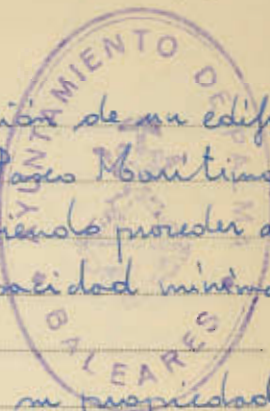 AYUNTAMIENTO DE PALMA
BALEARES
ión de un edif
Paseo Marítimo
iendo proceder a
pacidad mínima
su propiedad